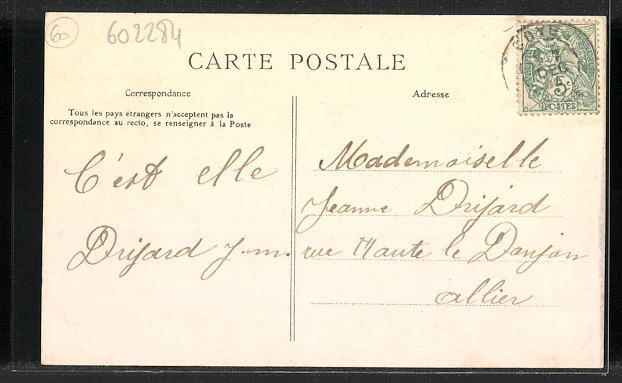 60
602284
CARTE POSTALE
Correspondance
Tous les pays étrangers n'acceptent pas la
correspondance au recto, se renseigner à la Poste
C'est elle
Drifard J. m.
Adresse
Mademoiselle
Jeanne Drifard
rue Haute le Donjon
allier
5
POSTES